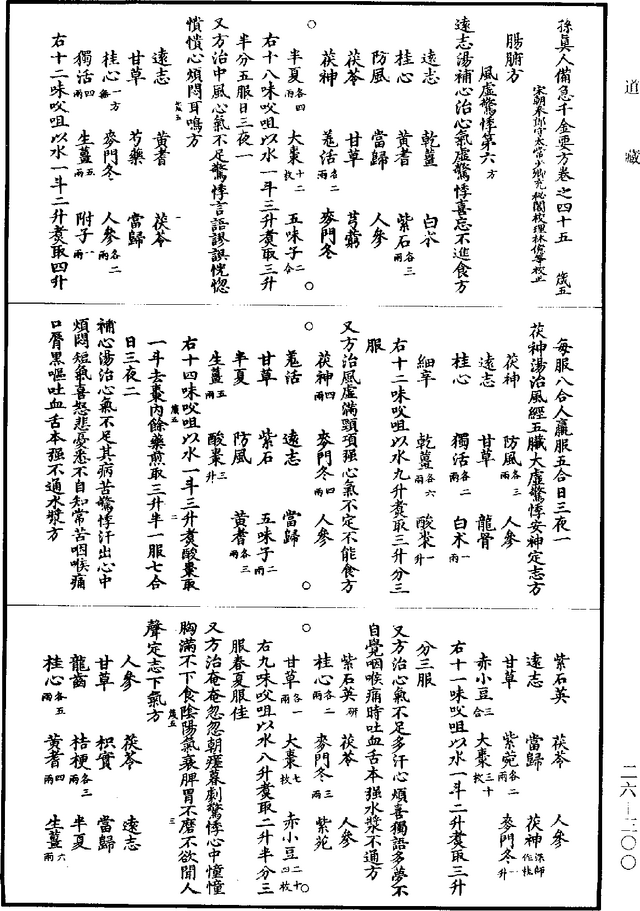 道藏
孫眞人備急千金要方卷之四十五 歲五
宋朝奉郎守太常少卿充秘閣校理林億等校正
腸腑方
風虛驚悸第六 方
遠志湯補心治心氣虛驚悸喜忘不進食方
遠志 乾薑 白朮
桂心 黃耆 紫石各三兩
防風 當歸 人參
茯苓 甘草 芎藭
茯神 羌活各二兩 麥門冬
半夏各四兩 大棗十二枚 五味子二合
右十八味㕮咀以水一斗三升煑取三升
半分五服日三夜一
又方治中風心氣不足驚悸言語謬誤恍惚
憒憒心煩悶耳鳴方
遠志 黃耆 茯苓
甘草 芍藥 當歸
桂心一方無 麥門冬 人參各二兩
獨活四兩 生薑五兩 附子一兩
右十二味㕮咀以水一斗二升煑取四升
每服八合人羸服五合日三夜一
茯神湯治風經五臟大虛驚悸安神定志方
茯神 防風各三兩 人參
遠志 甘草 龍骨
桂心 獨活各二兩 白朮一兩
細辛 乾薑各六兩 酸棗一升
右十二味㕮咀以水九升煑取三升分三
服
又方治風虛滿頸項强心氣不定不能食方
茯神四兩 麥門冬四兩 人參
羌活 遠志 當歸
甘草 紫石 五味子一兩
半夏 防風 黃耆各三兩
生薑五兩 酸棗三升
右十四味㕮咀以水一斗三升煑酸棗取
一斗去棗內餘藥煎取三升半一服七合
日三夜二
補心湯治心氣不足其病苦驚悸汗出心中
煩悶短氣喜怒悲憂悉不自知常苦咽喉痛
口脣黑嘔吐血舌本强不通水漿方
紫石英 茯苓 人參
遠志 當歸 茯神深師作桂
甘草 紫菀各二兩 麥門冬一升
赤小豆三合 大棗三十枚
右十一味㕮咀以水一斗二升煑取三升
分三服
又方治心氣不足多汗心煩喜獨語多夢不
自覺咽喉痛時吐血舌本强水漿不通方
紫石英研 茯苓 人參
桂心各二兩 麥門冬三兩 紫菀
甘草各一兩 大棗七枚 赤小豆二十四枚
右九味㕮咀以水八升煑取二升半分三
服春夏服佳
又方治奄奄忽忽朝瘥暮劇驚悸心中憧憧
胸滿不下食陰陽氣衰脾胃不磨不欲聞人
聲定志下氣方
人參 茯苓 遠志
甘草 枳實 當歸
龍齒 桔梗各三兩 半夏
桂心各五兩 黃耆四兩 生薑六兩
二六－三〇〇